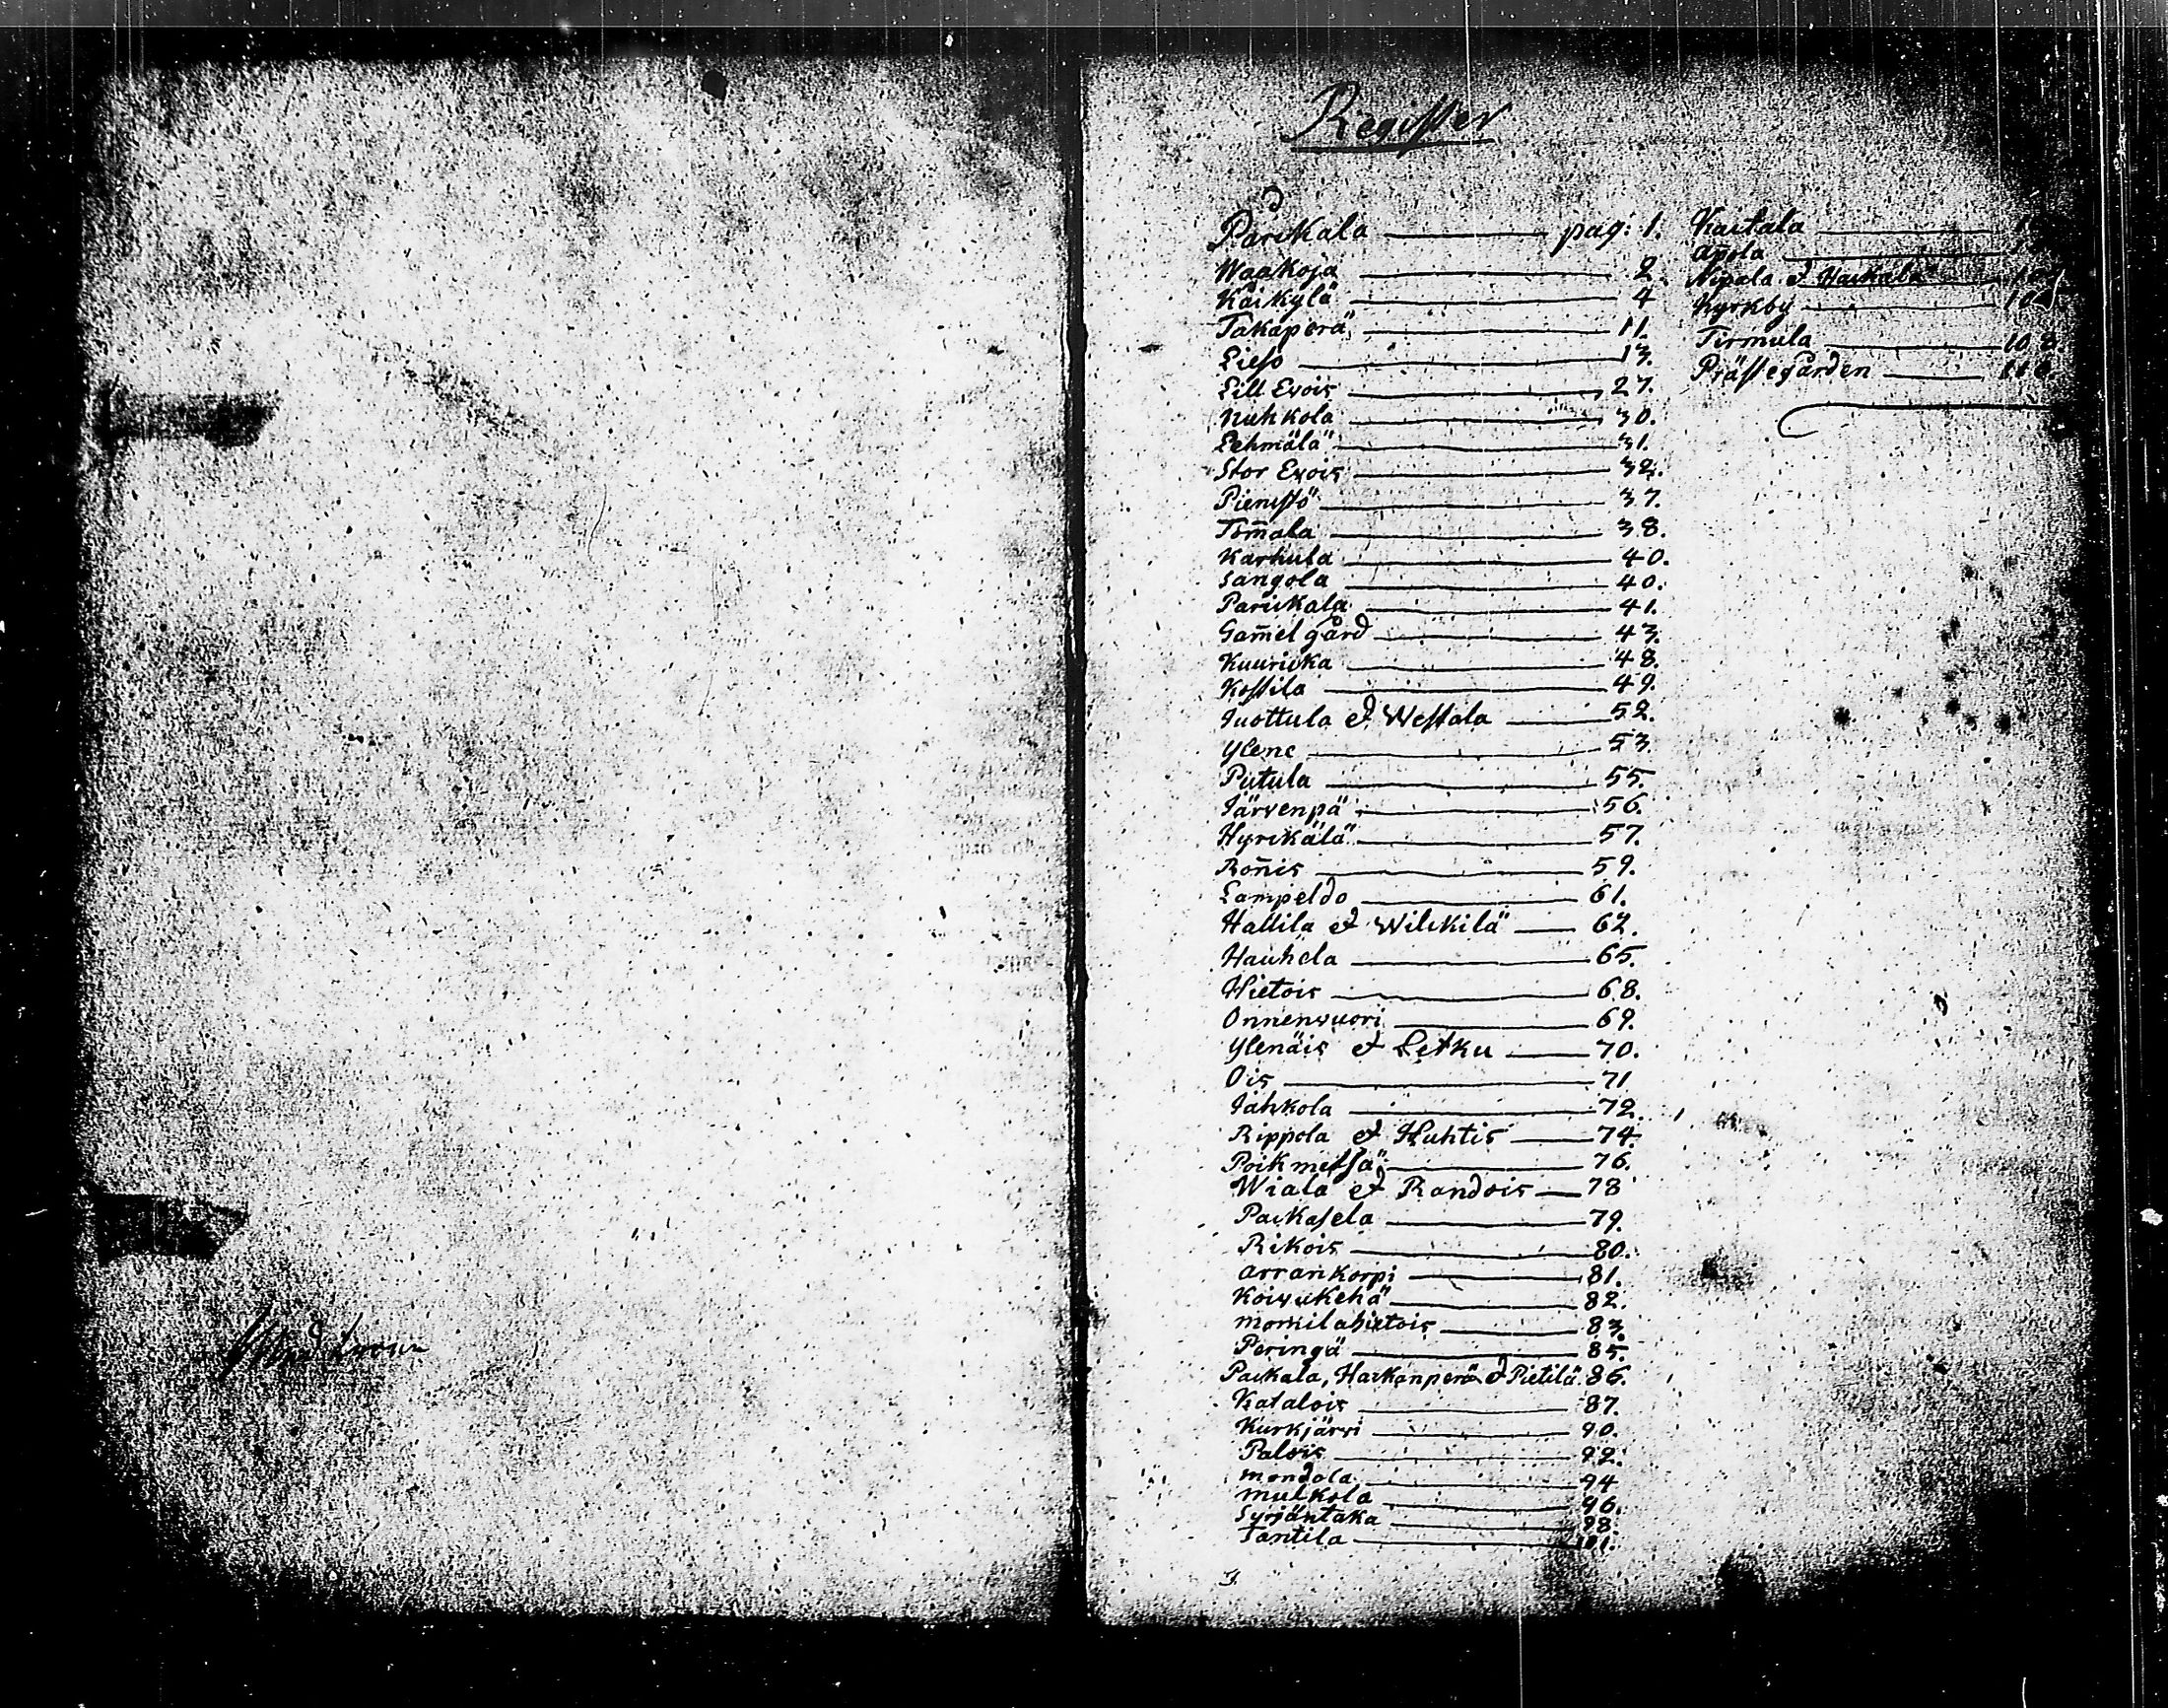 Register
Parikala pag: 1.
Waakoja 2.
Käikylä 4
Takaperä 11.
Liesso 13.
Lill Evois 27.
Nuhkola 30.
Lehmälä 31.
Stor Evois 32.
Pienistö 37.
Tom̄ala 38.
Karhula 40.
Sangola 40.
Parikala 41.
Gam̄elgård 43.
Kuurikka 48.
Kostila 49.
Juottula et Westala 52.
Ylene 53.
Putula 55.
Järvenpä 56.
Hyrikälä 57.
Ron̄is 59.
Lampeldo 61.
Hallila et Wilikilä 62.
Hauhela 65.
Hietois 68.
Onnenvuori 69.
Ylenäis et Letku 70.
Ois 71
Jahkola 72.
Rippola et Huhtis 74.
Poikmetsä 76.
Wiala et Randois 78
Paikasela 79.
Rikois 80.
Arrankorpi 81.
Koivukehä 82.
Morkilahietois 83.
Peringä 85.
Paikala, Harkänperä et Pietilä 86.
Katalois 87.
Kurkjärvi 90.
Palois 92.
Mondola 94
Mulkola 96.
Syrjäntaka 98.
Tantila 101.
Kaitala
Apola
Nipala et Haikala
Kyrkby
Tirmula 108.
Prästegården